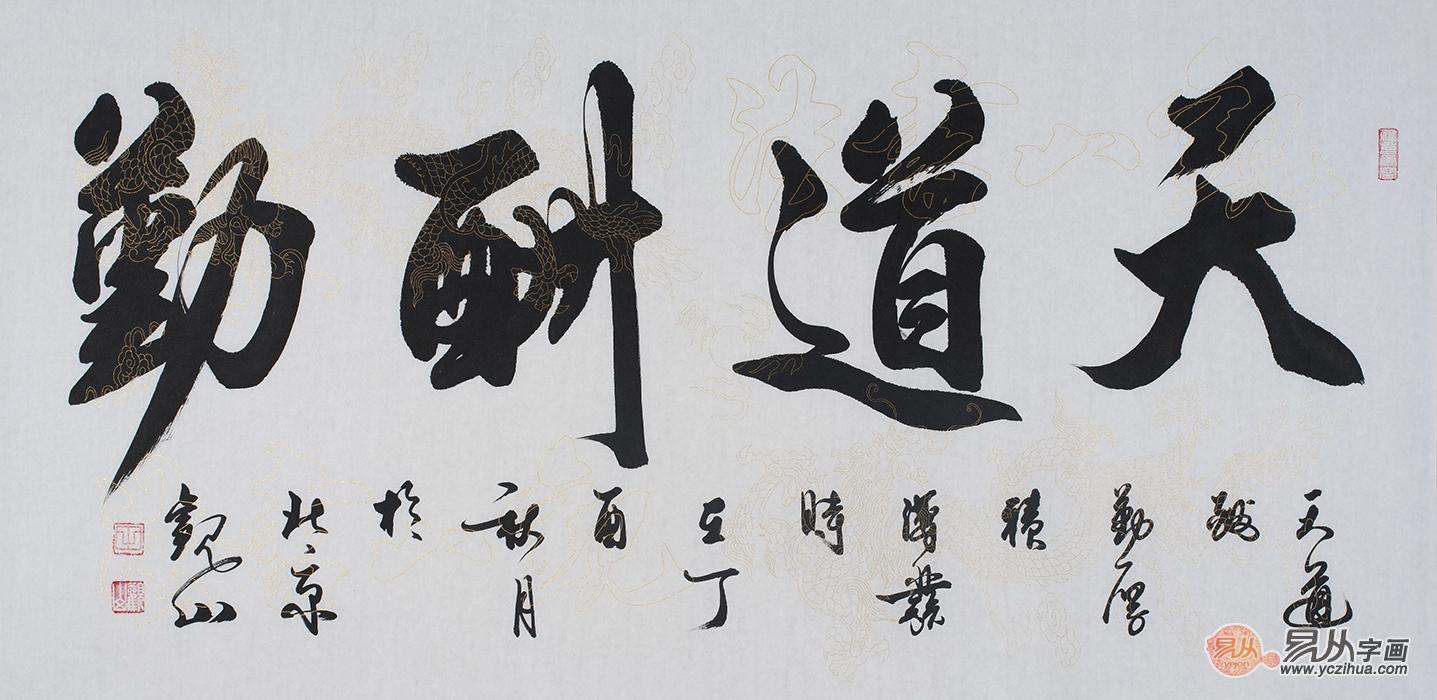 天道酬勤
天道酬勤厚積薄發時在丁酉秋月於北京觀山
易从
yejon
易从字画
www.yczihua.com